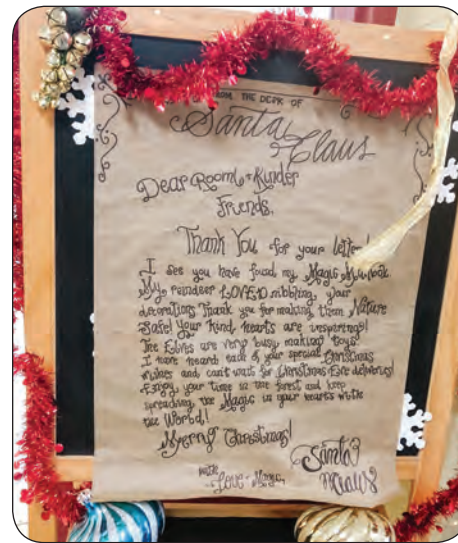 FROM THE DESK OF
Santa Claus
Dear Room + Kinder
Friends,
Thank You for your letter!
I see you have found my Magic
My reindeer LOVED nibbling your
decorations Thank you for making them Nature
Safe! Your kind hearts are inspiring!
The Elves are very busy making toys!
I have heard each of your special Christmas
wishes and can't wait for Christmas Eve deliveries!
Enjoy your time in the forest and keep
spreading the Magic in your hearts with
the World!
Merry Christmas!
with
Love + Magic,
Santa
Claus